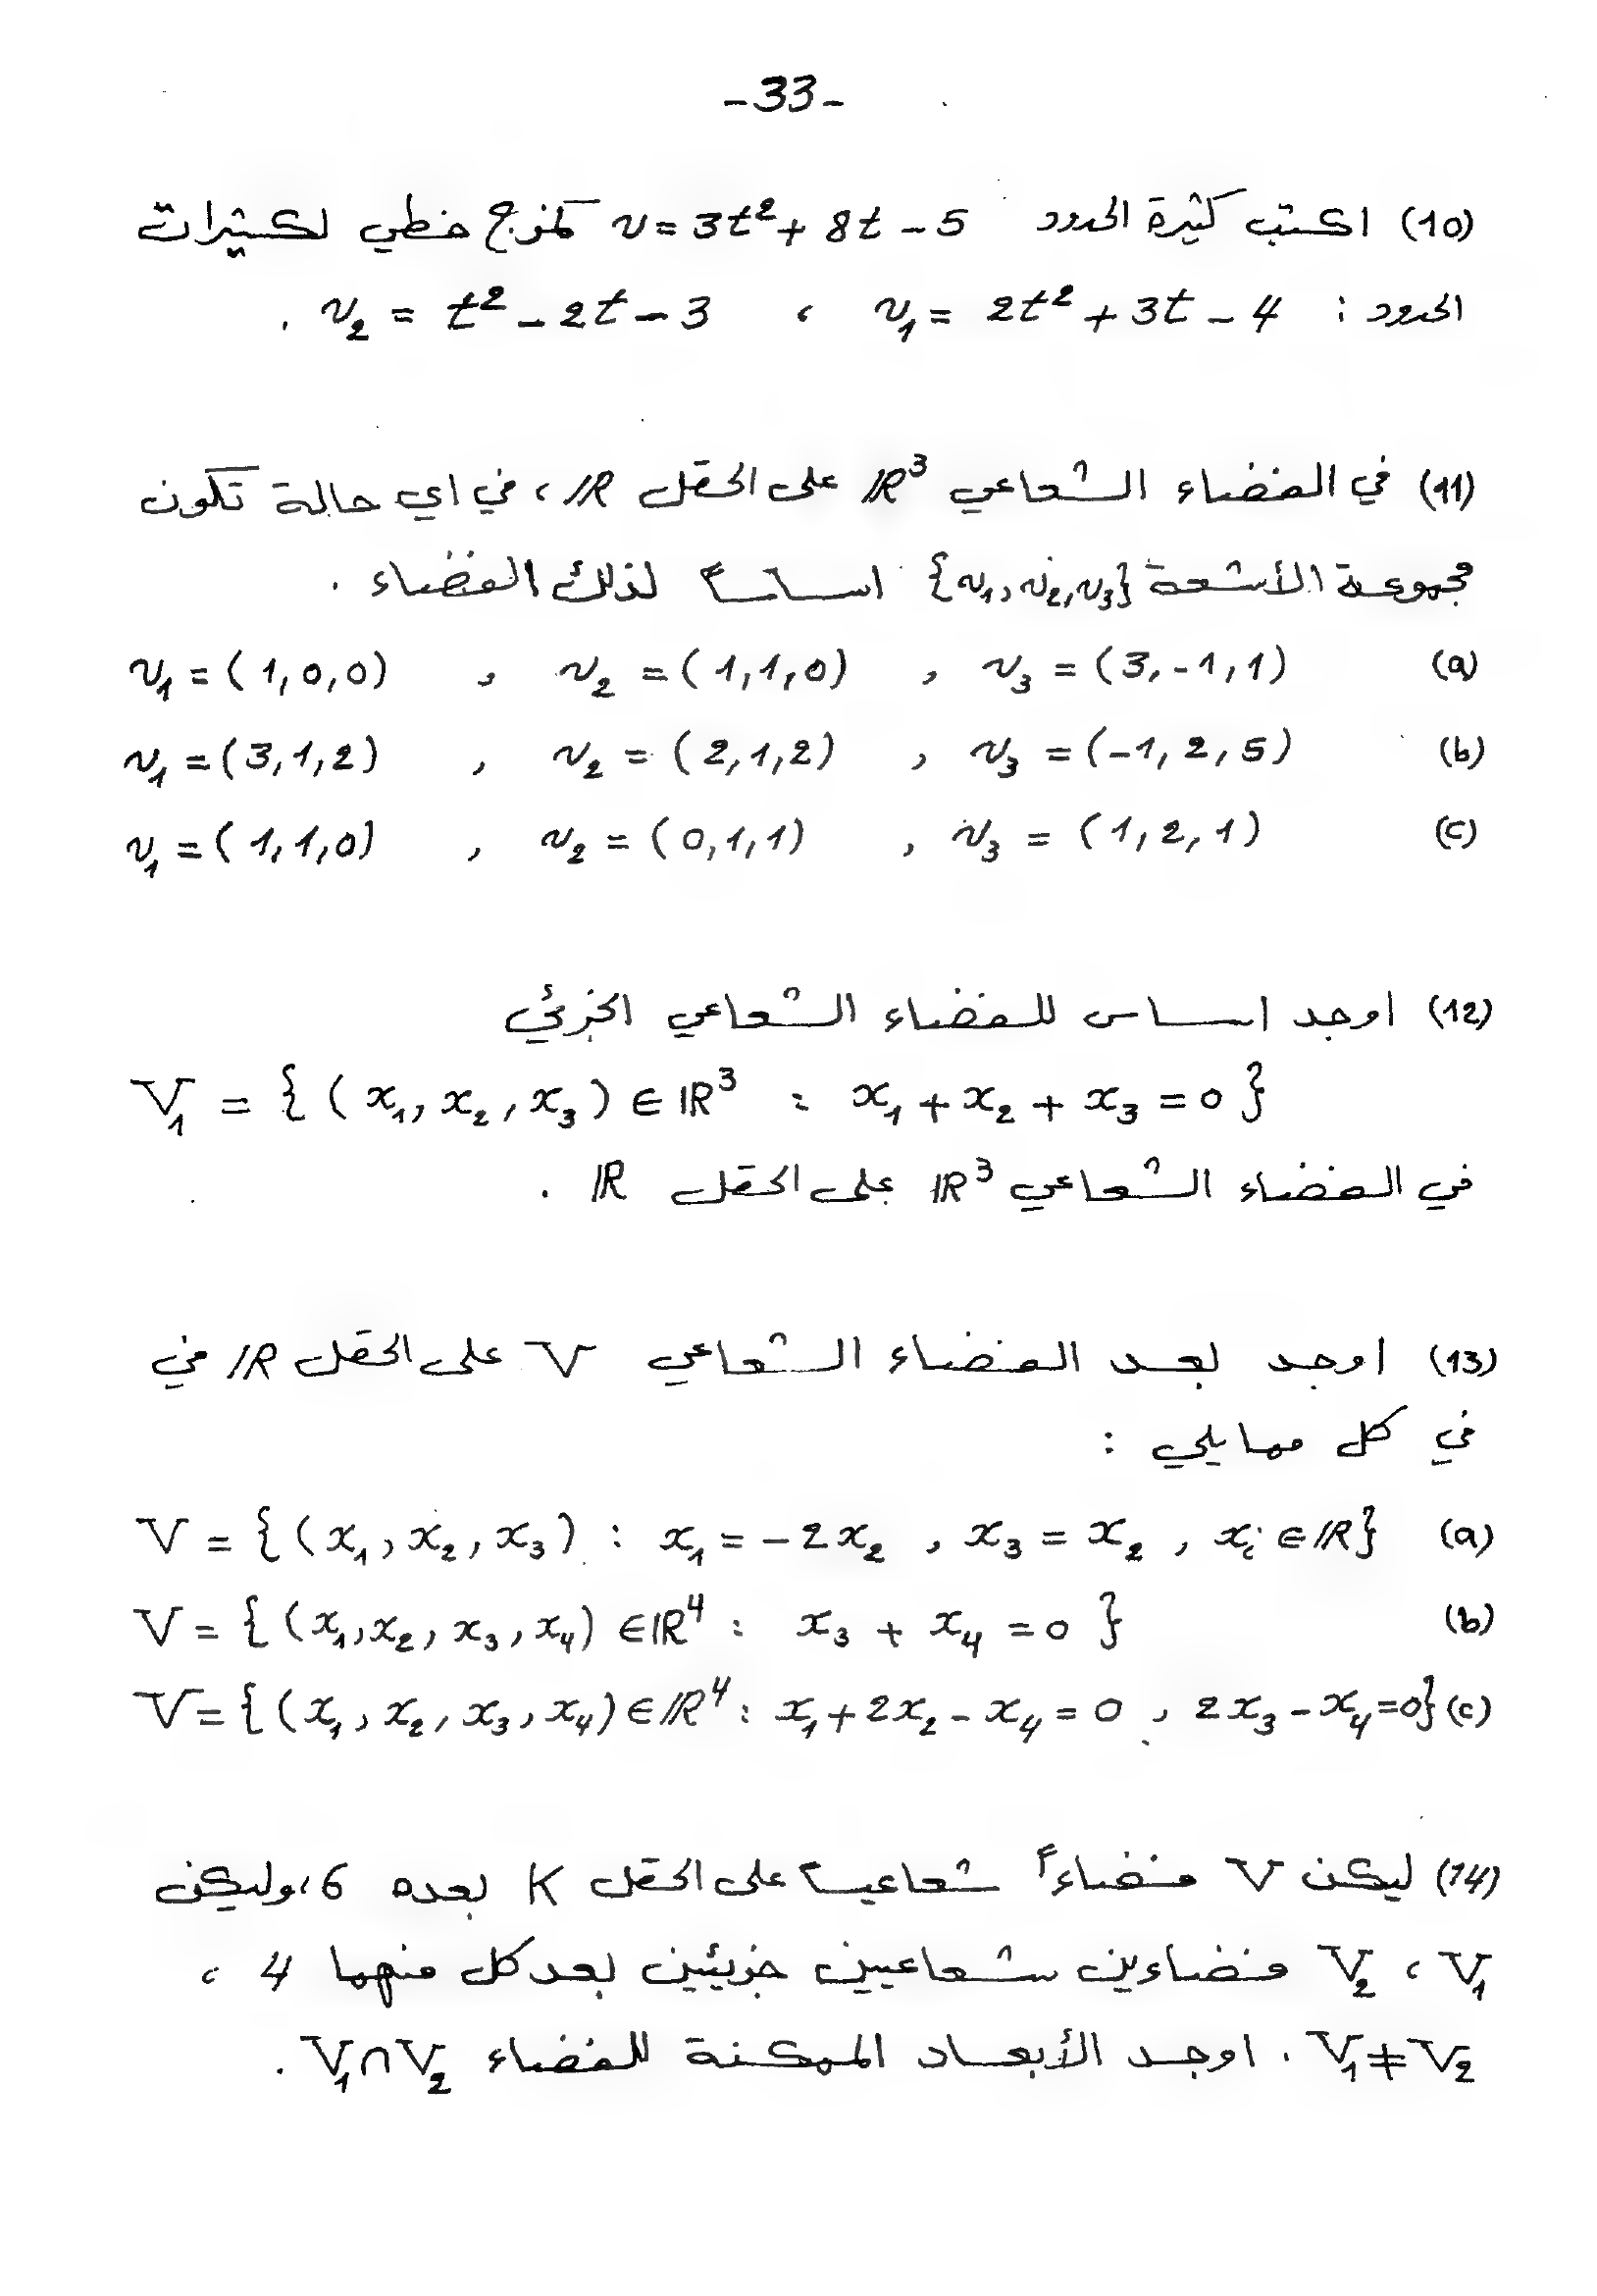 -33-
(10) اكتب كثيرة الحدود v = 3t² + 8t - 5 كمزج خطي لكثيرات
الحدود : v₁ = 2t² + 3t - 4 ، v₂ = t² - 2t - 3 .
(11) في الفضاء الشعاعي ℝ³ على الحقل ℝ ، في اي حالة تكون
مجموعة الأشعة {v₁, v₂, v₃} اساساً لذلك الفضاء .
(a) v₁ = (1, 0, 0) , v₂ = (1, 1, 0) , v₃ = (3, -1, 1)
(b) v₁ = (3, 1, 2) , v₂ = (2, 1, 2) , v₃ = (-1, 2, 5)
(c) v₁ = (1, 1, 0) , v₂ = (0, 1, 1) , v₃ = (1, 2, 1)
(12) اوجد اساس للفضاء الشعاعي الجزئي
V₁ = { (x₁, x₂, x₃) ∈ ℝ³ : x₁ + x₂ + x₃ = 0 }
في الفضاء الشعاعي ℝ³ على الحقل ℝ .
(13) اوجد بعد الفضاء الشعاعي V على الحقل ℝ في
في كل مما يلي :
(a) V = { (x₁, x₂, x₃) : x₁ = -2x₂ , x₃ = x₂ , xᵢ ∈ ℝ }
(b) V = { (x₁, x₂, x₃, x₄) ∈ ℝ⁴ : x₃ + x₄ = 0 }
(c) V = { (x₁, x₂, x₃, x₄) ∈ ℝ⁴ : x₁ + 2x₂ - x₄ = 0 , 2x₃ - x₄ = 0 }
(14) ليكن V فضاءاً شعاعياً على الحقل K بعده 6 ، وليكن
V₁ ، V₂ فضاءين شعاعيين جزيئين بعد كل منهما 4 ،
V₁ ≠ V₂ . اوجد الأبعاد الممكنة للفضاء V₁ ∩ V₂ .